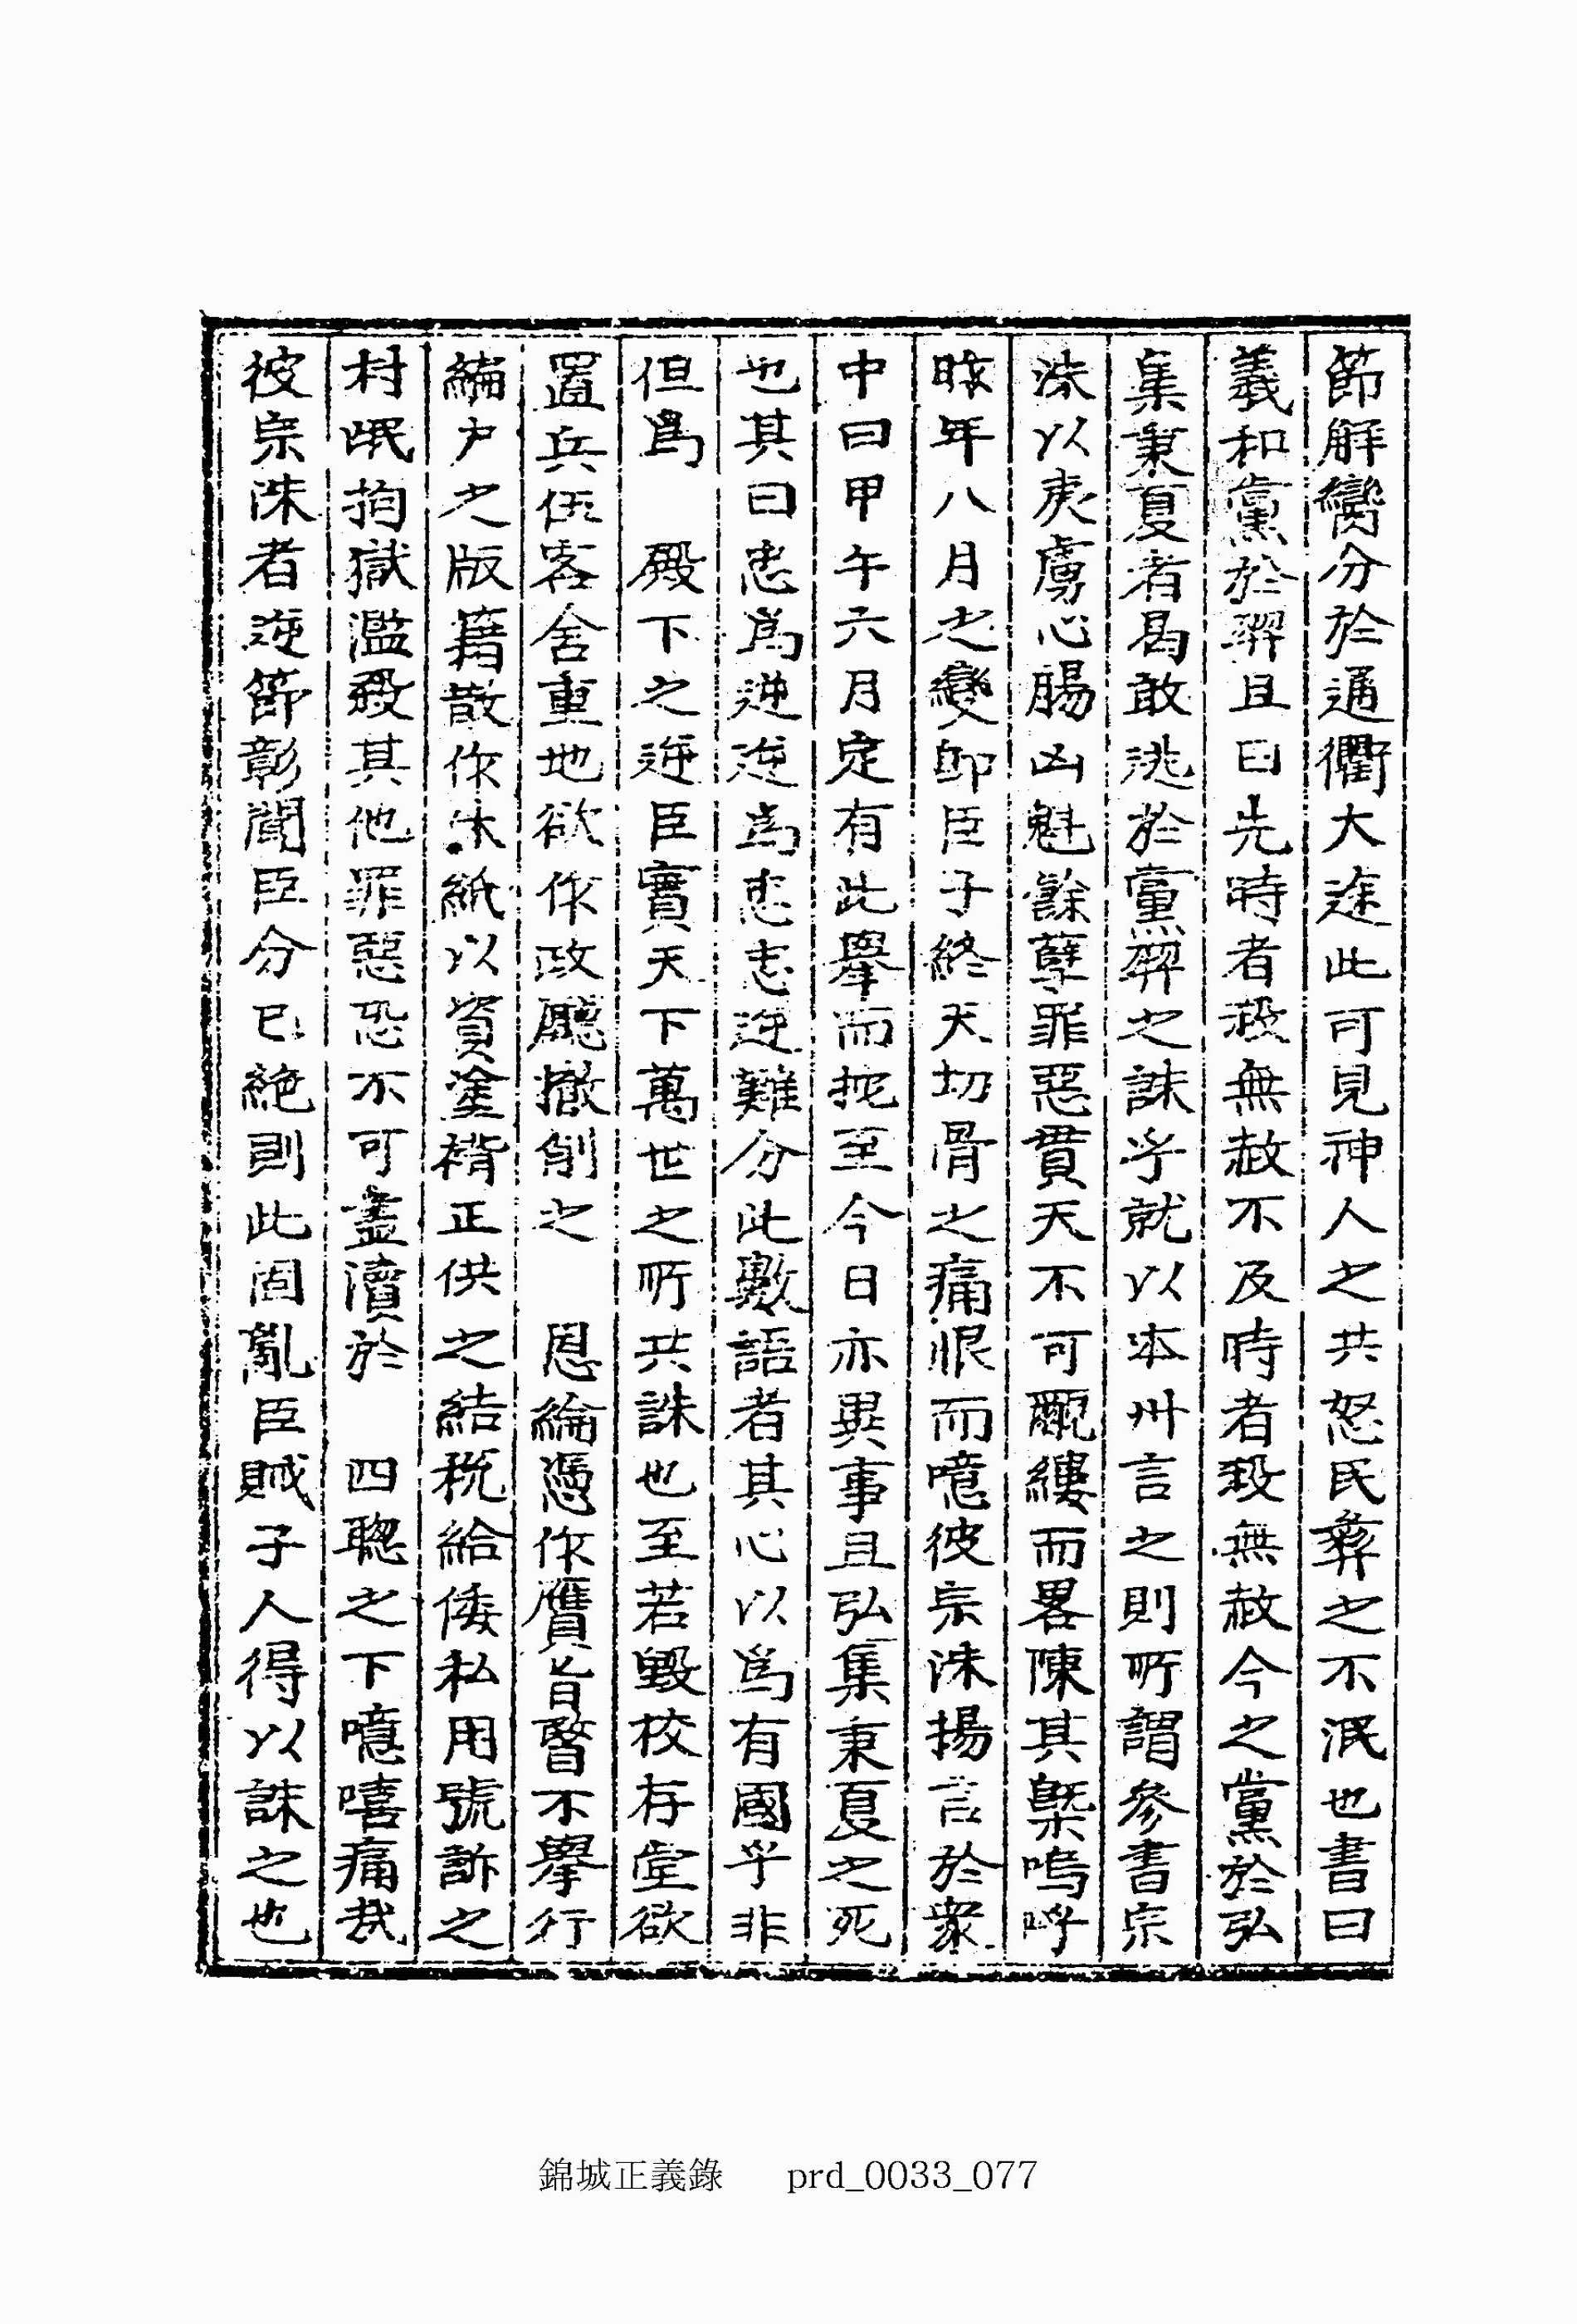 節解臠分於通衢大逵此可見神人之共怒民彝之不泯也書曰
羲和黨於羿且曰先時者殺無赦不及時者殺無赦今之黨於弘
集秉夏者曷敢逃於黨羿之誅乎就以本州言之則所謂參書宗
洙以夷虜心腸凶魁餘孽罪惡貫天不可覼縷而畧陳其槩嗚呼
昨年八月之變卽臣子終天切骨之痛恨而噫彼宗洙揚言於衆
中曰甲午六月定有此擧而拖至今日亦異事且弘集秉夏之死
也其曰忠爲逆逆爲忠忠逆難分此數語者其心以爲有國乎非
但爲　殿下之逆臣實天下萬世之所共誅也至若毁校存堂欲
置兵伍客舍重地欲作政廳撤削之　恩綸憑作贋旨瞖不擧行
編户之版籍散作休紙以資塗褙正供之結税給倭私用號訴之
村氓拘獄濫殺其他罪惡恐不可盡瀆於　四聰之下噫嘻痛哉
彼宗洙者逆節彰聞臣分已絶則此固亂臣賊子人得以誅之也
錦城正義錄　prd_0033_077